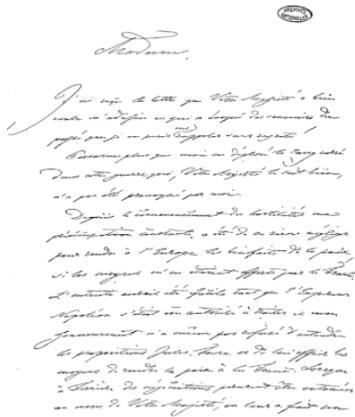 ARCHIVES NATIONALES
Madame,
J'ai reçu la lettre que Votre Majesté a bien
voulu m'adresser et qui a évoqué des souvenirs du
passé que je ne puis me rappeler sans regrets
Personne plus que moi ne déplore le sang versé
dans cette guerre qui, Votre Majesté le sait bien,
n'a pas été provoquée par moi.
Depuis le commencement des hostilités ma
préoccupation constante a été de ne rien négliger
pour rendre à l'Europe les bienfaits de la paix
si les moyens m'en étaient offerts par la France.
L'entente aurait été facile tant que l'Empereur
Napoléon s'était cru autorisé à traiter et mon
Gouvernement n'a même pas refusé d'entendre
les propositions Jules Favre et de lui offrir les
moyens de rendre la paix à la France. Lorsque
à Ferrières des négociations parurent être entamées
au nom de Votre Majesté, on leur a fait un